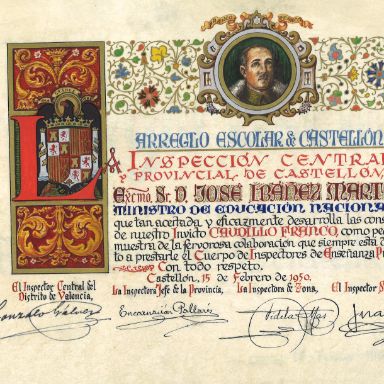 ARREGLO ESCOLAR & CASTELLÓN
LA INSPECCIÓN CENTRAL
Y PROVINCIAL DE CASTELLÓN
EXCMO. Sr. D. JOSÉ IBÁÑEZ MART
MINISTRO DE EDUCACIÓN NACIONAL
que tan acertada y eficazmente desarrolla las con
de nuestro Invicto CAUDILLO FRANCO, como pe
muestra de la fervorosa colaboración que siempre está d
to a prestarle el Cuerpo de Inspectores de Enseñanza P
Con todo respeto.
Castellón, 15 de Febrero de 1950.
El Inspector Central del
Distrito de Valencia,
La Inspectora Jefe de la Provincia,
La Inspectora de Zona,
El Inspector
Gonzalo Gálvez
Encarnación Pallarés